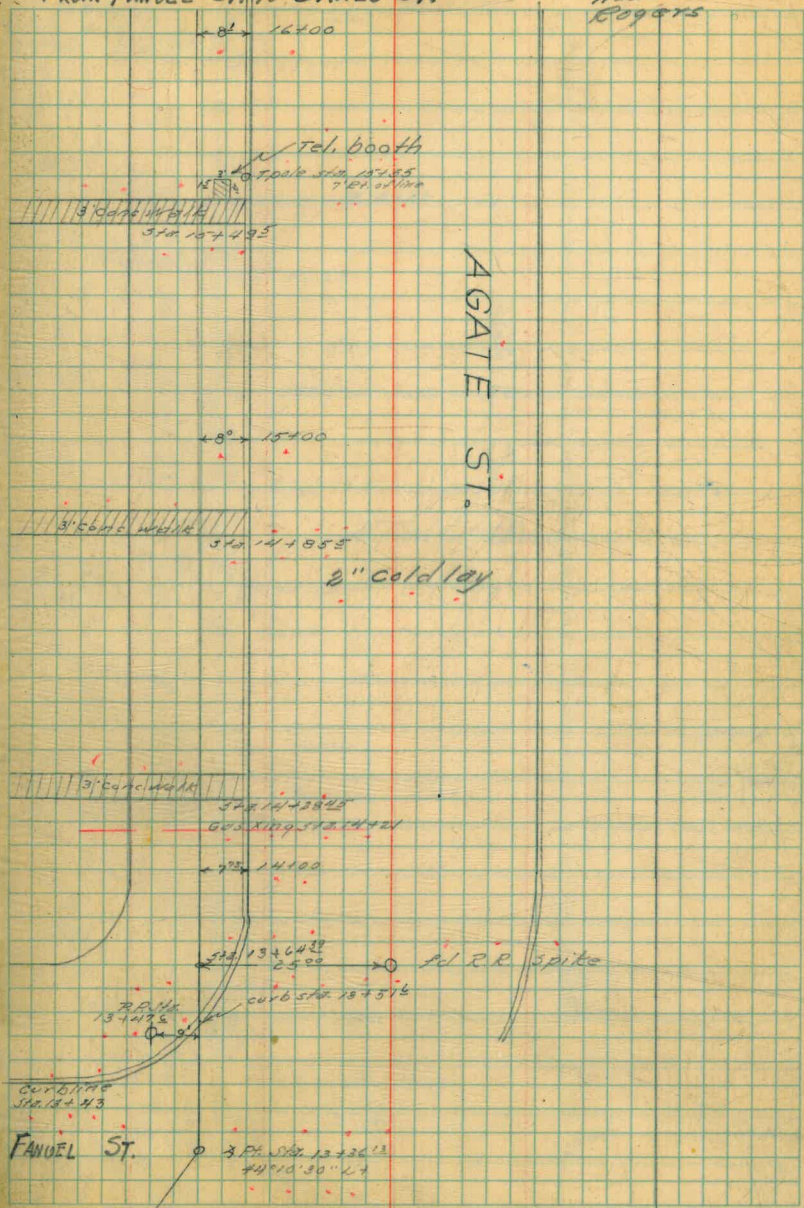 Rogers
8¹ 16+00
Tel. booth
3'
T.pole sta. 15+55
7' Rt. of line
3' Conc walk
Sta. 15+49⁵
AGATE ST.
8⁰ 15+00
3' Conc walk
Sta 14+85⁵
2" Cold lay
3' conc walk
Sta. 14+28.45
Gas Xing sta. 14+21
7⁷⁵ 14+00
Sta. 13+64³⁹
25⁰⁰
fd R.R. spike
curb sta. 13+51⁶
R.P. Sta.
13+47⁵
9'
curbline
Sta. 13+43
FANUEL ST.
∡ Pt. Sta. 13+36¹³
44°10'30" Lt